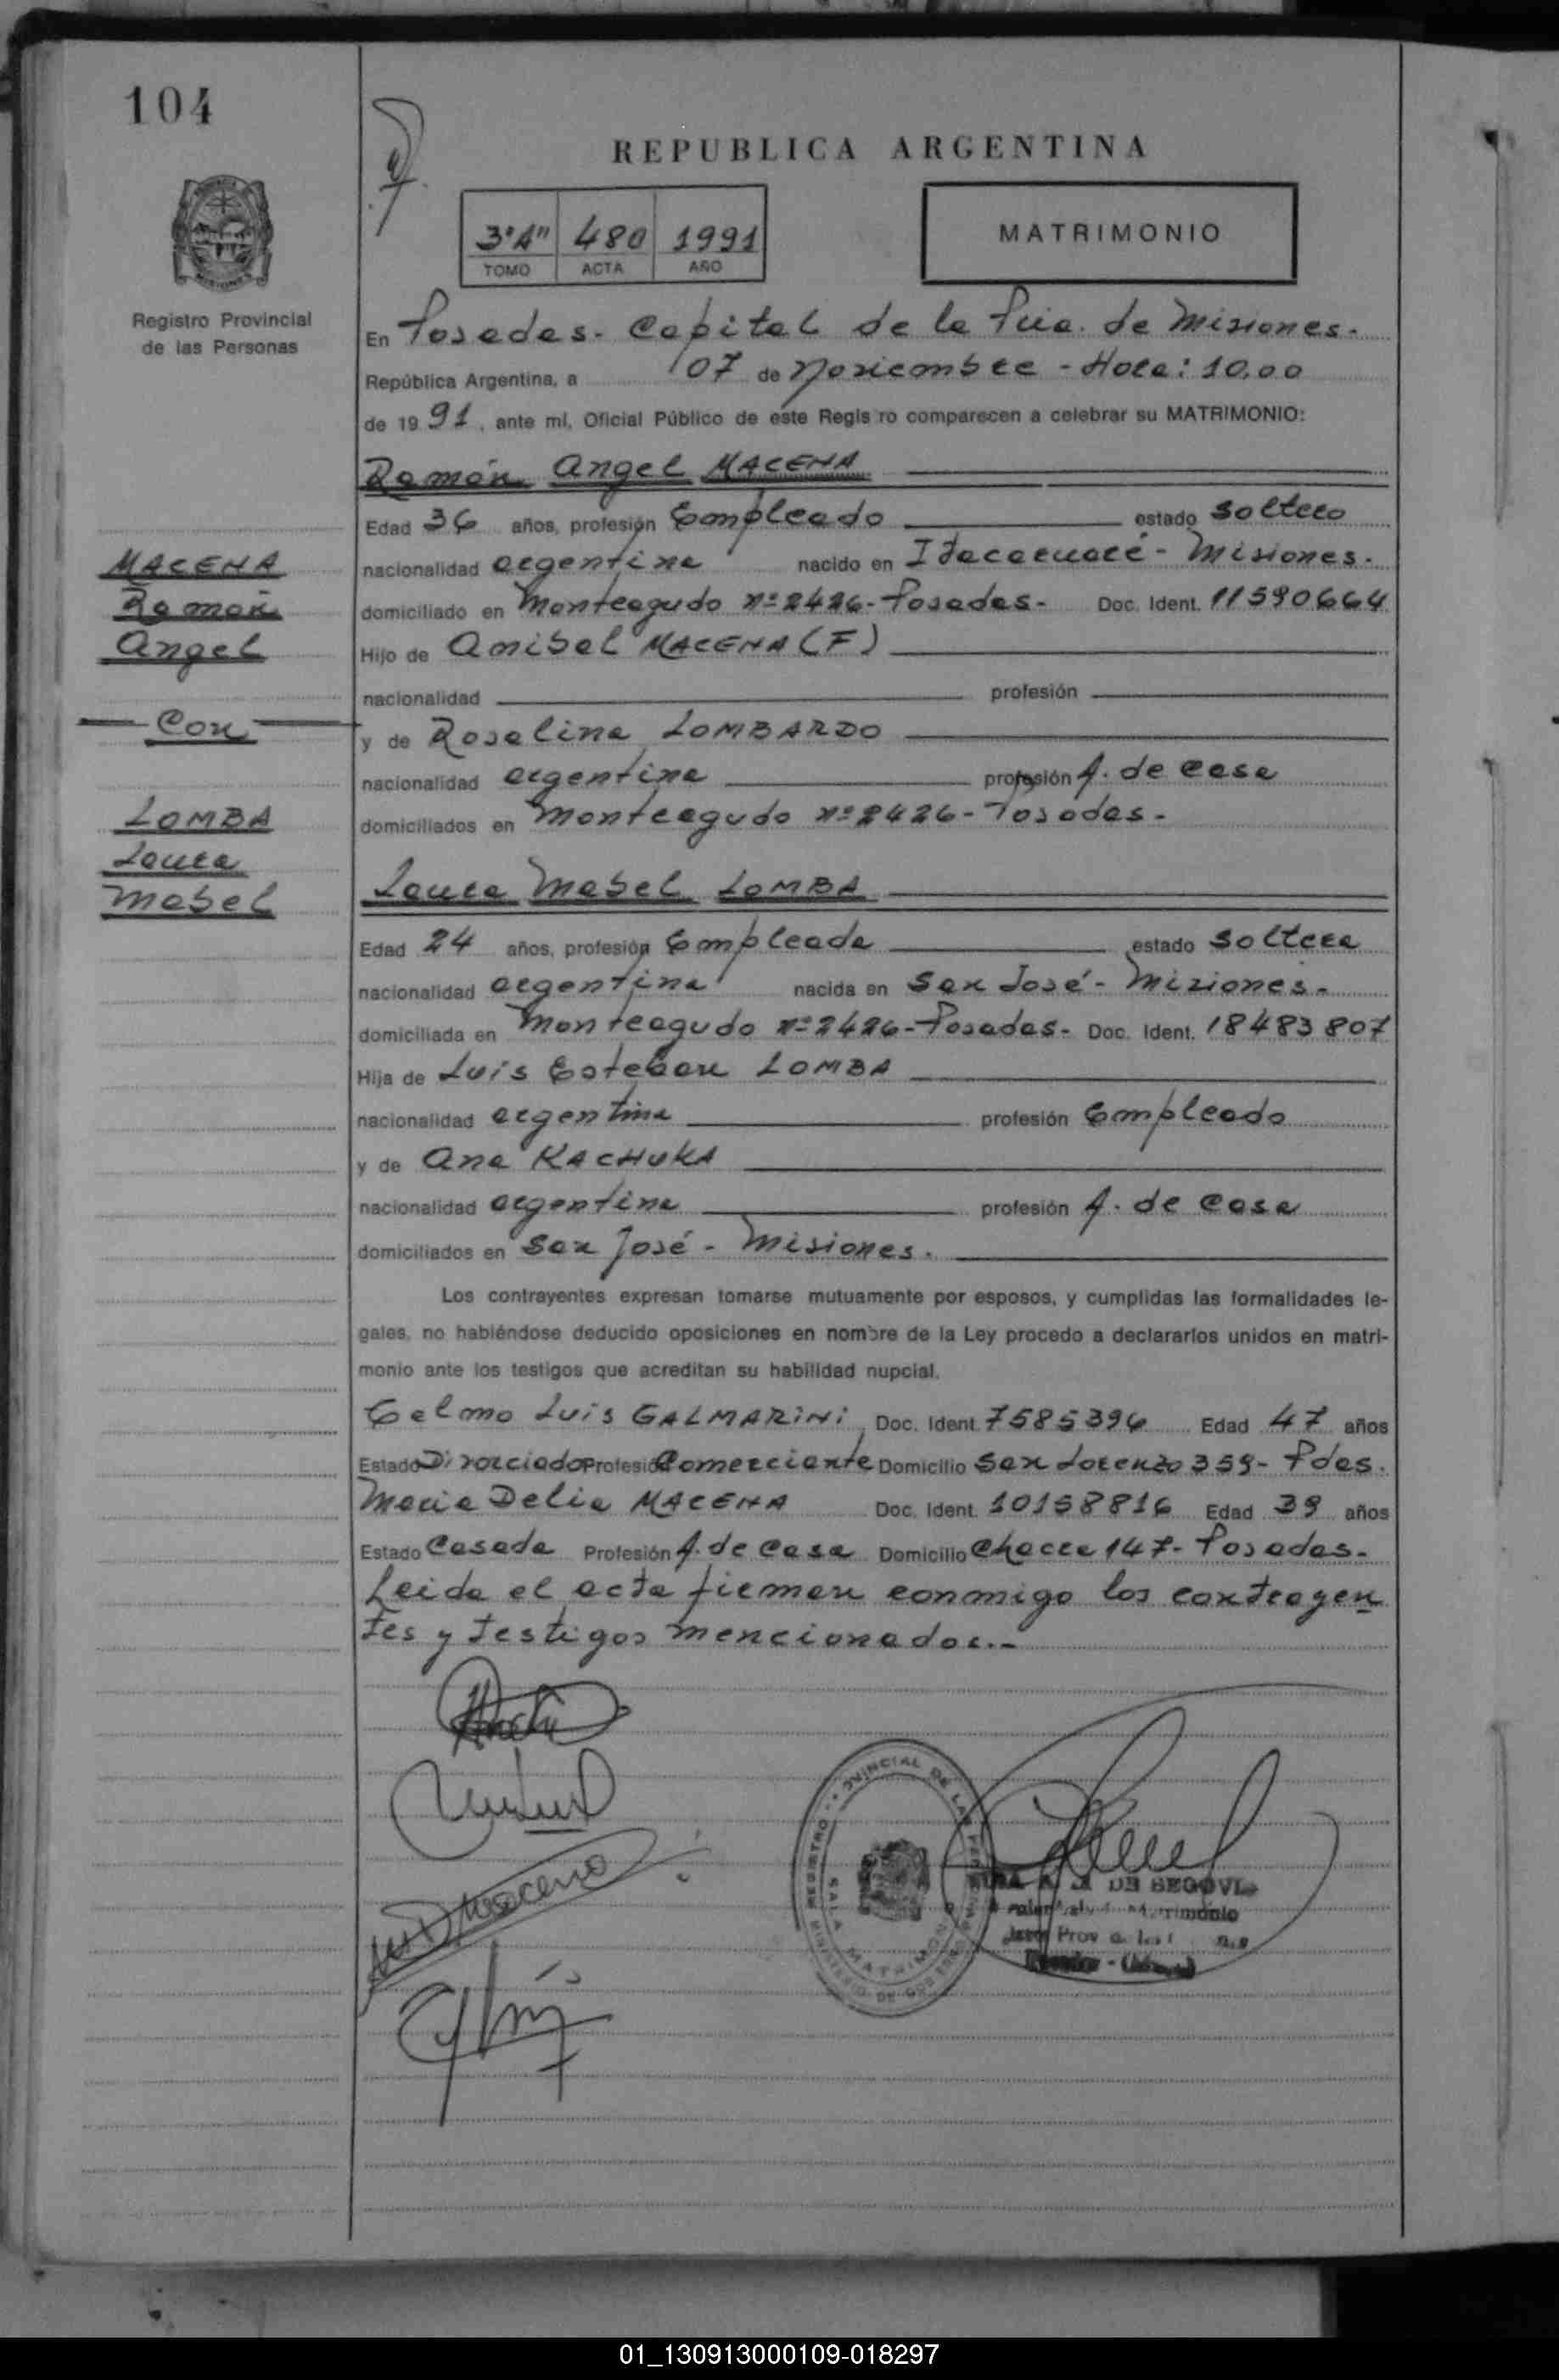 104
REPUBLICA ARGENTINA
3º"A" 480 1991
TOMO ACTA AÑO
MATRIMONIO
Registro Provincial
de las Personas
En Posadas - Capital de la Pcia. de Misiones.
República Argentina, a 07 de Noviembre - Hora: 10,00
de 1991, ante mí, Oficial Público de este Regis ro comparecen a celebrar su MATRIMONIO:
Ramón Angel MACENA
Edad 36 años, profesión Empleado estado soltero
MACENA
Ramón
Angel
Con
LOMBA
Laura
Mabel
nacionalidad argentina nacido en Itacaruaré - Misiones.
domiciliado en Monteagudo nº 2426 - Posadas - Doc. Ident. 11590664
Hijo de Anibal MACENA (F)
nacionalidad profesión
y de Rosalina LOMBARDO
nacionalidad argentina profesión A. de casa
domiciliados en Monteagudo nº 2426 - Posadas -
Laura Mabel LOMBA
Edad 24 años, profesión Empleada estado soltera
nacionalidad argentina nacida en San José - Misiones -
domiciliada en Monteagudo nº 2426 - Posadas - Doc. Ident. 18483807
Hija de Luis Esteban LOMBA
nacionalidad argentina profesión Empleado
y de Ana KACHUKA
nacionalidad argentina profesión A. de casa
domiciliados en San José - Misiones.
Los contrayentes expresan tomarse mutuamente por esposos, y cumplidas las formalidades le-
gales, no habiéndose deducido oposiciones en nombre de la Ley procedo a declararlos unidos en matri-
monio ante los testigos que acreditan su habilidad nupcial.
Celmo Luis GALMARINI Doc. Ident. 7585396 Edad 47 años
Estado Divorciado Profesión Comerciante Domicilio San Lorenzo 359 - Pdas.
Maria Delia MACENA Doc. Ident. 10158816 Edad 39 años
Estado Casada Profesión A. de casa Domicilio Chacra 147 - Posadas -
Leida el acta firman conmigo los contrayen
tes y testigos mencionados.-
Macena
REGISTRO PROVINCIAL DE LAS PERSONAS
SALA MATRIMONIO
MINISTERIO DE GOBIERNO
DE SEGOVIA
Matrimonio
01_130913000109-018297